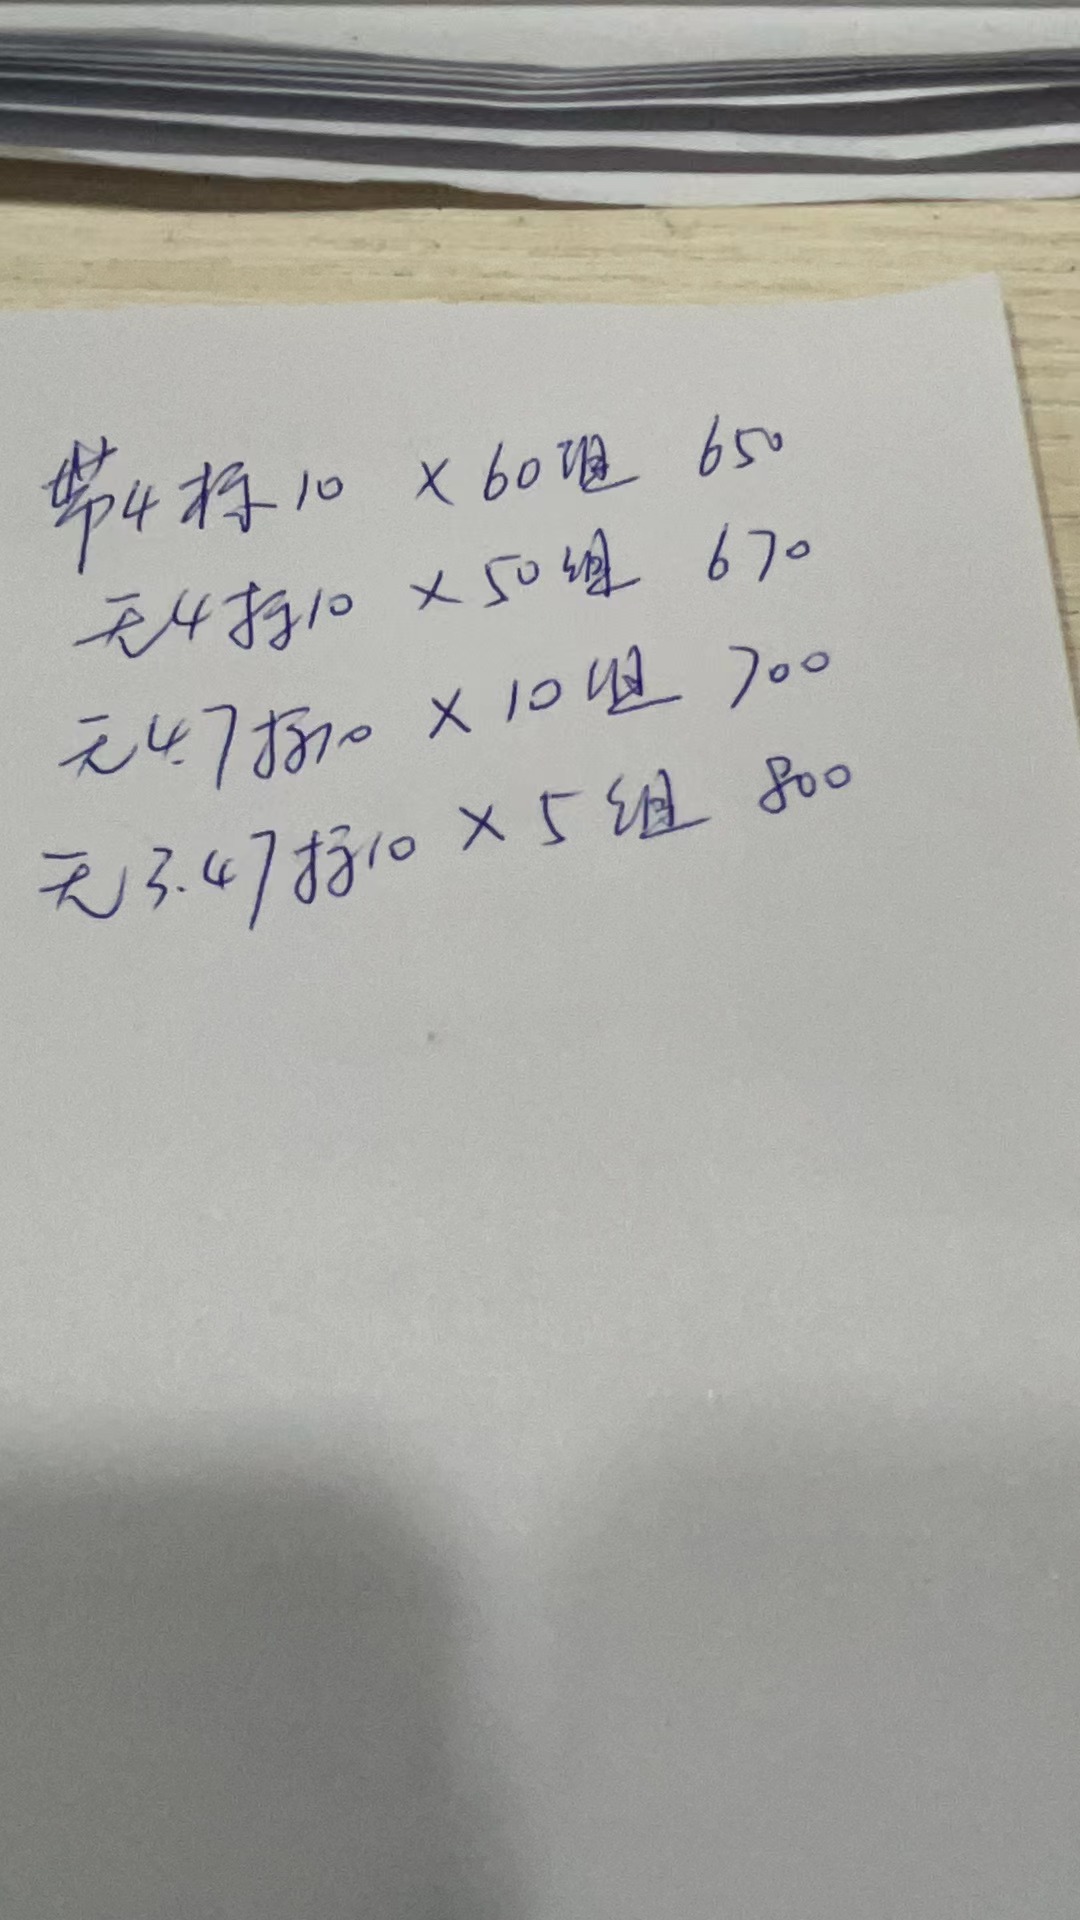 带4标10 × 60组 650
无4标10 × 50组 670
无4.7标10 × 10组 700
无3.47标10 × 5组 800